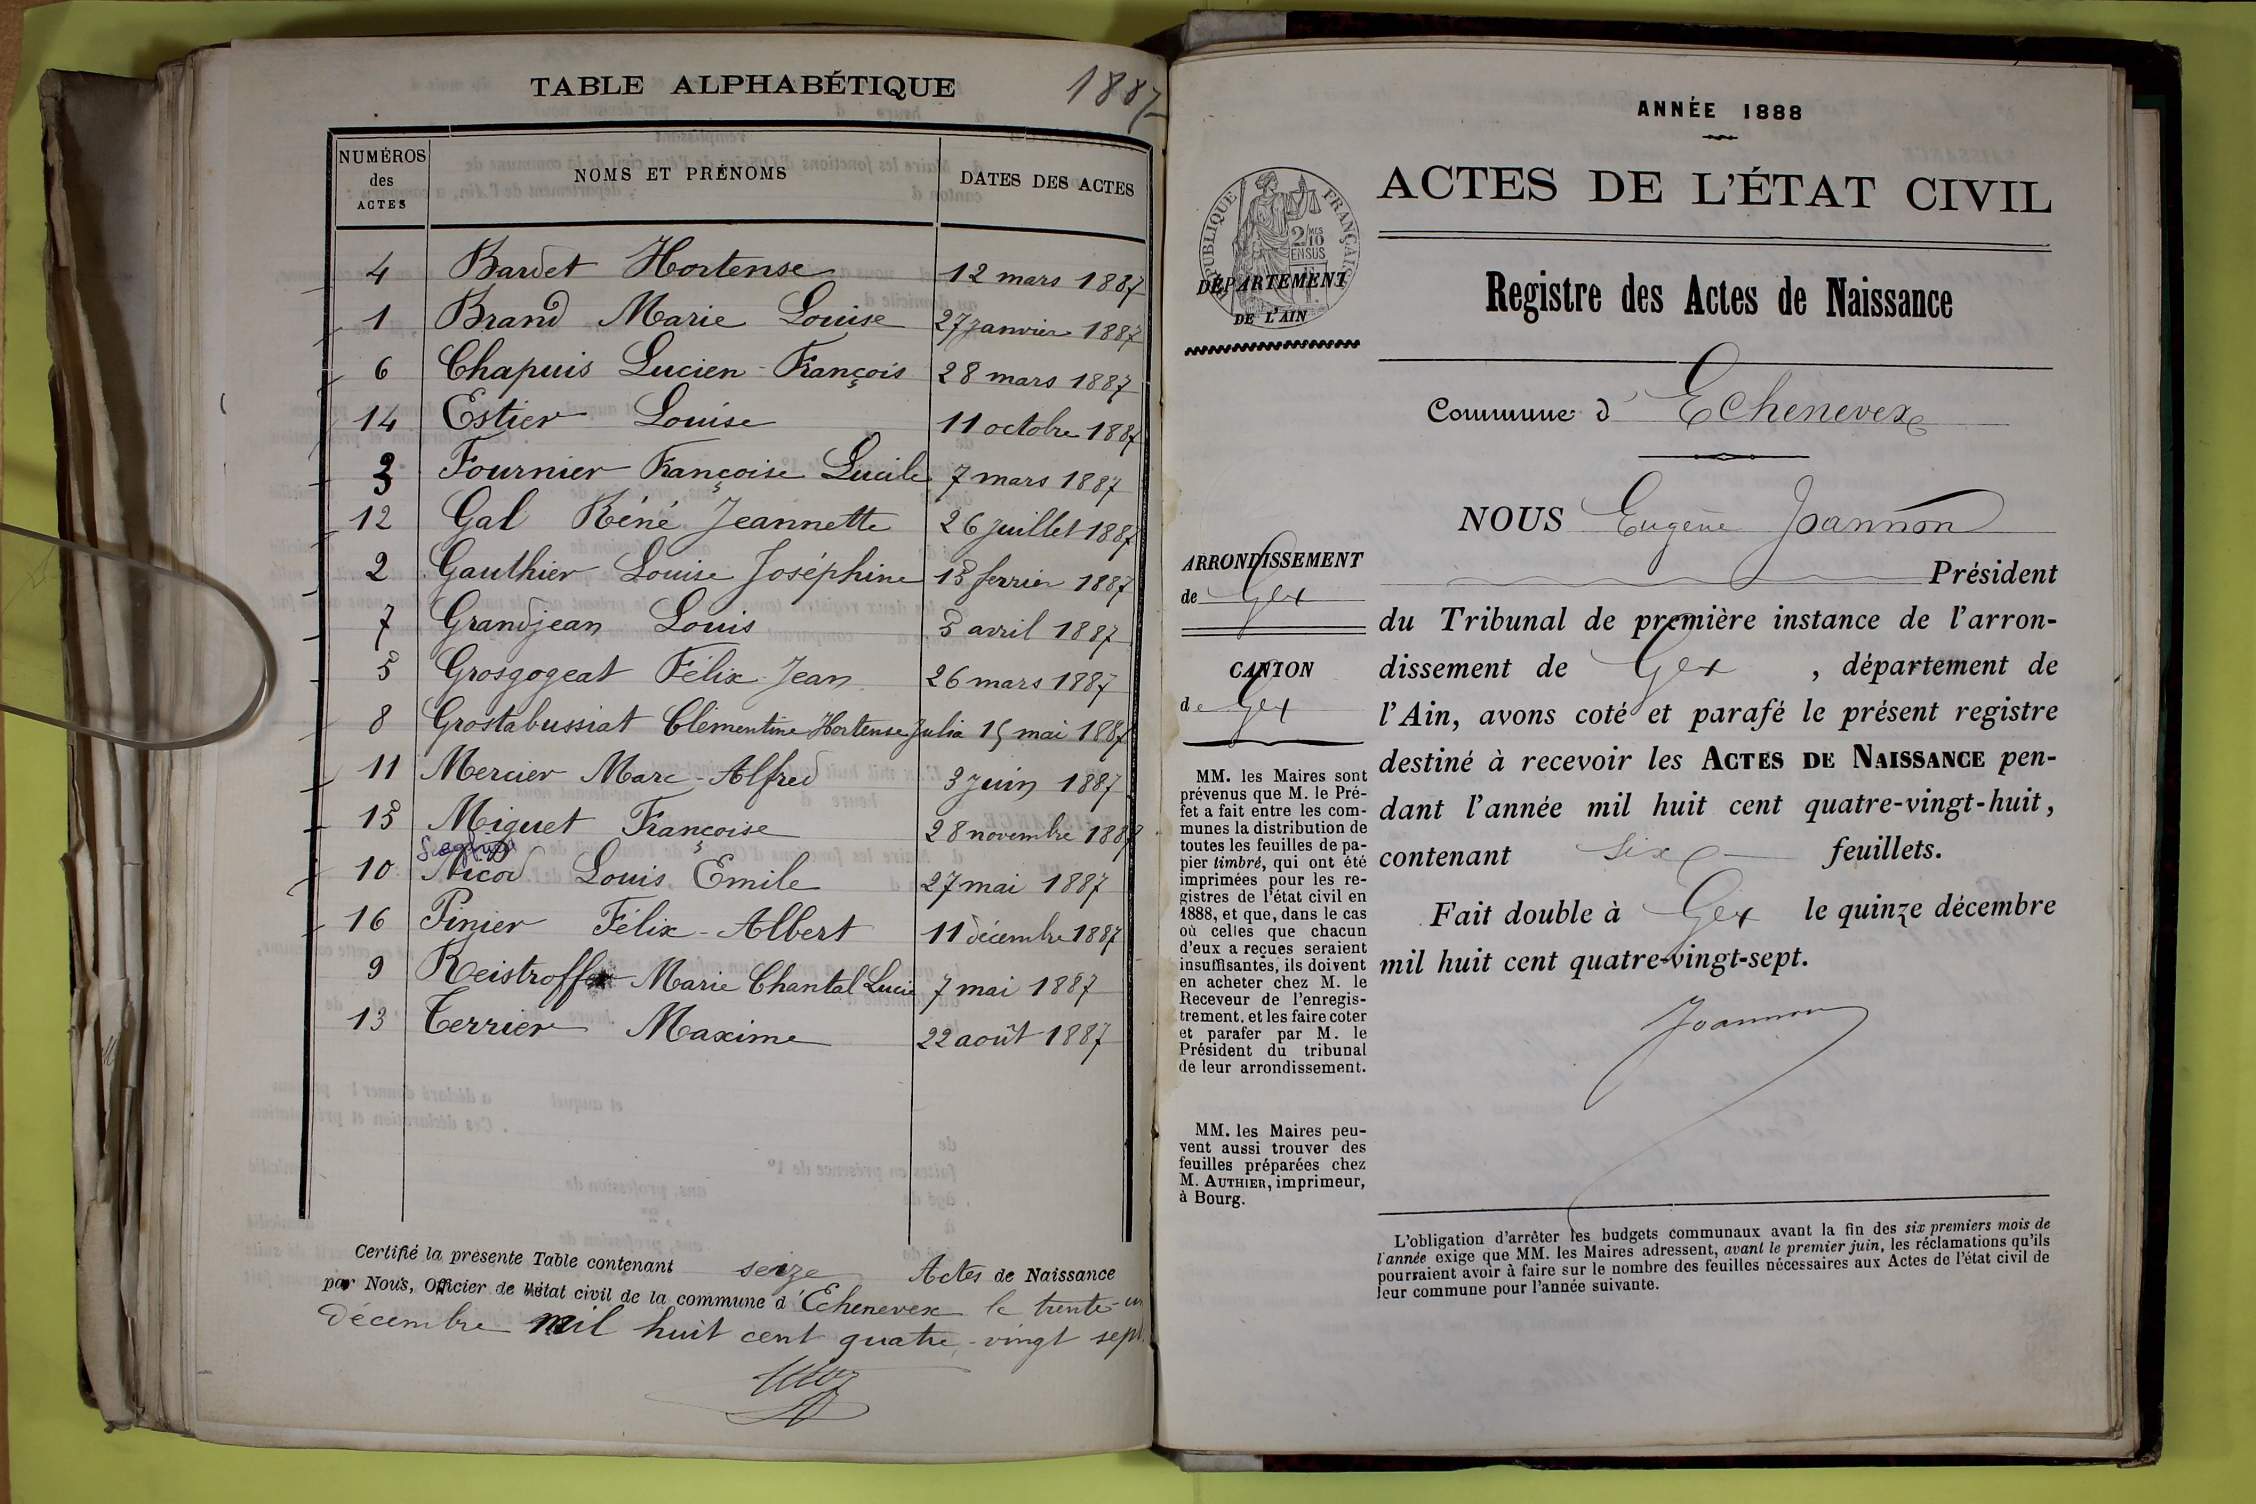 TABLE ALPHABÉTIQUE 1887
NUMÉROS des ACTES NOMS ET PRÉNOMS DATES DES ACTES
4 Bardet Hortense 12 mars 1887
1 Brand Marie Louise 27 janvier 1887
6 Chapuis Lucien-François 28 mars 1887
14 Estier Louise 11 octobre 1887
3 Fournier Françoise Lucile 7 mars 1887
12 Gal Réné Jeannette 26 juillet 1887
2 Gauthier Louise Joséphine 15 ferrier 1887
7 Grandjean Louis 5 avril 1887
5 Grosgogeat Félix Jean 26 mars 1887
8 Grostabussiat Clémentine Hortense Julia 15 mai 1887
11 Mercier Marc-Alfred 3 juin 1887
15 Miguet Françoise 28 novembre 1887
10 Nicod Louis Emile 27 mai 1887
16 Pinier Félix-Albert 11 décembre 1887
9 Reistroffer Marie Chantal Lucie 7 mai 1887
13 Terrier Maxime 22 août 1887
Certifié la présente Table contenant seize Actes de Naissance
par Nous, Officier de l'état civil de la commune d'Echenevex le trente-un
décembre mil huit cent quatre-vingt sept.
ANNÉE 1888
ACTES DE L'ÉTAT CIVIL
RÉPUBLIQUE FRANÇAISE
2/10 MES
EN SUS
DÉPARTEMENT
DE L'AIN
Registre des Actes de Naissance
Commune d'Echenevex
NOUS Eugène Joannon
Président
du Tribunal de première instance de l'arron-
dissement de Gex, département de
l'Ain, avons coté et parafé le présent registre
destiné à recevoir les ACTES DE NAISSANCE pen-
dant l'année mil huit cent quatre-vingt-huit,
contenant six feuillets.
Fait double à Gex le quinze décembre
mil huit cent quatre-vingt-sept.
Joannon
ARRONDISSEMENT
de Gex
CANTON
de Gex
MM. les Maires sont
prévenus que M. le Pré-
fet a fait entre les com-
munes la distribution de
toutes les feuilles de pa-
pier timbré, qui ont été
imprimées pour les re-
gistres de l'état civil en
1888, et que, dans le cas
où celles que chacun
d'eux a reçues seraient
insuffisantes, ils doivent
en acheter chez M. le
Receveur de l'enregis-
trement, et les faire coter
et parafer par M. le
Président du tribunal
de leur arrondissement.
MM. les Maires peu-
vent aussi trouver des
feuilles préparées chez
M. AUTHIER, imprimeur,
à Bourg.
L'obligation d'arrêter les budgets communaux avant la fin des six premiers mois de
l'année exige que MM. les Maires adressent, avant le premier juin, les réclamations qu'ils
pourraient avoir à faire sur le nombre des feuilles nécessaires aux Actes de l'état civil de
leur commune pour l'année suivante.